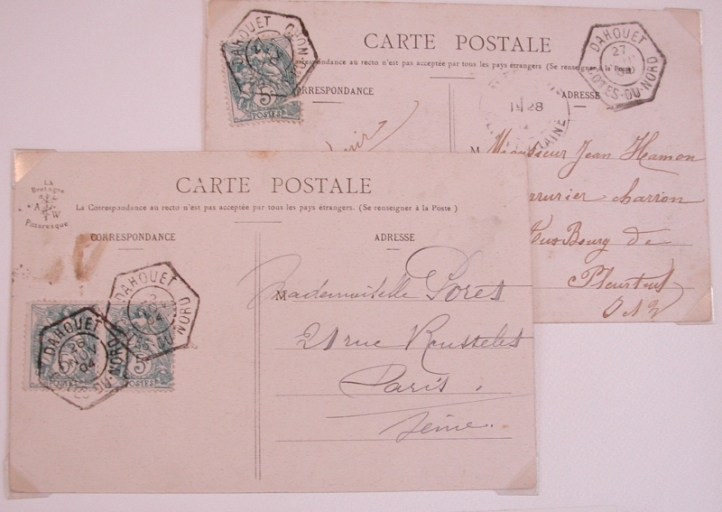 DAHOUET
CARTE POSTALE
correspondance au recto n'est pas acceptée par tous les pays étrangers (Se renseigner à la Poste
CORRESPONDANCE
ADRESSE
DAHOUET
27
COTES-DU-NORD
5
POSTES
18 28
Monsieur Jean Hamon
charron
Bourg de
Pleurtuit
I & V
La
Bretagne
A W
Pittoresque
CARTE POSTALE
La Correspondance au recto n'est pas acceptée par tous les pays étrangers. (Se renseigner à la Poste)
CORRESPONDANCE
ADRESSE
DAHOUET
DU-NORD
DAHOUET
26
04
5
5
POSTES
Mademoiselle Pores
21 rue Rousselet
Paris
Seine